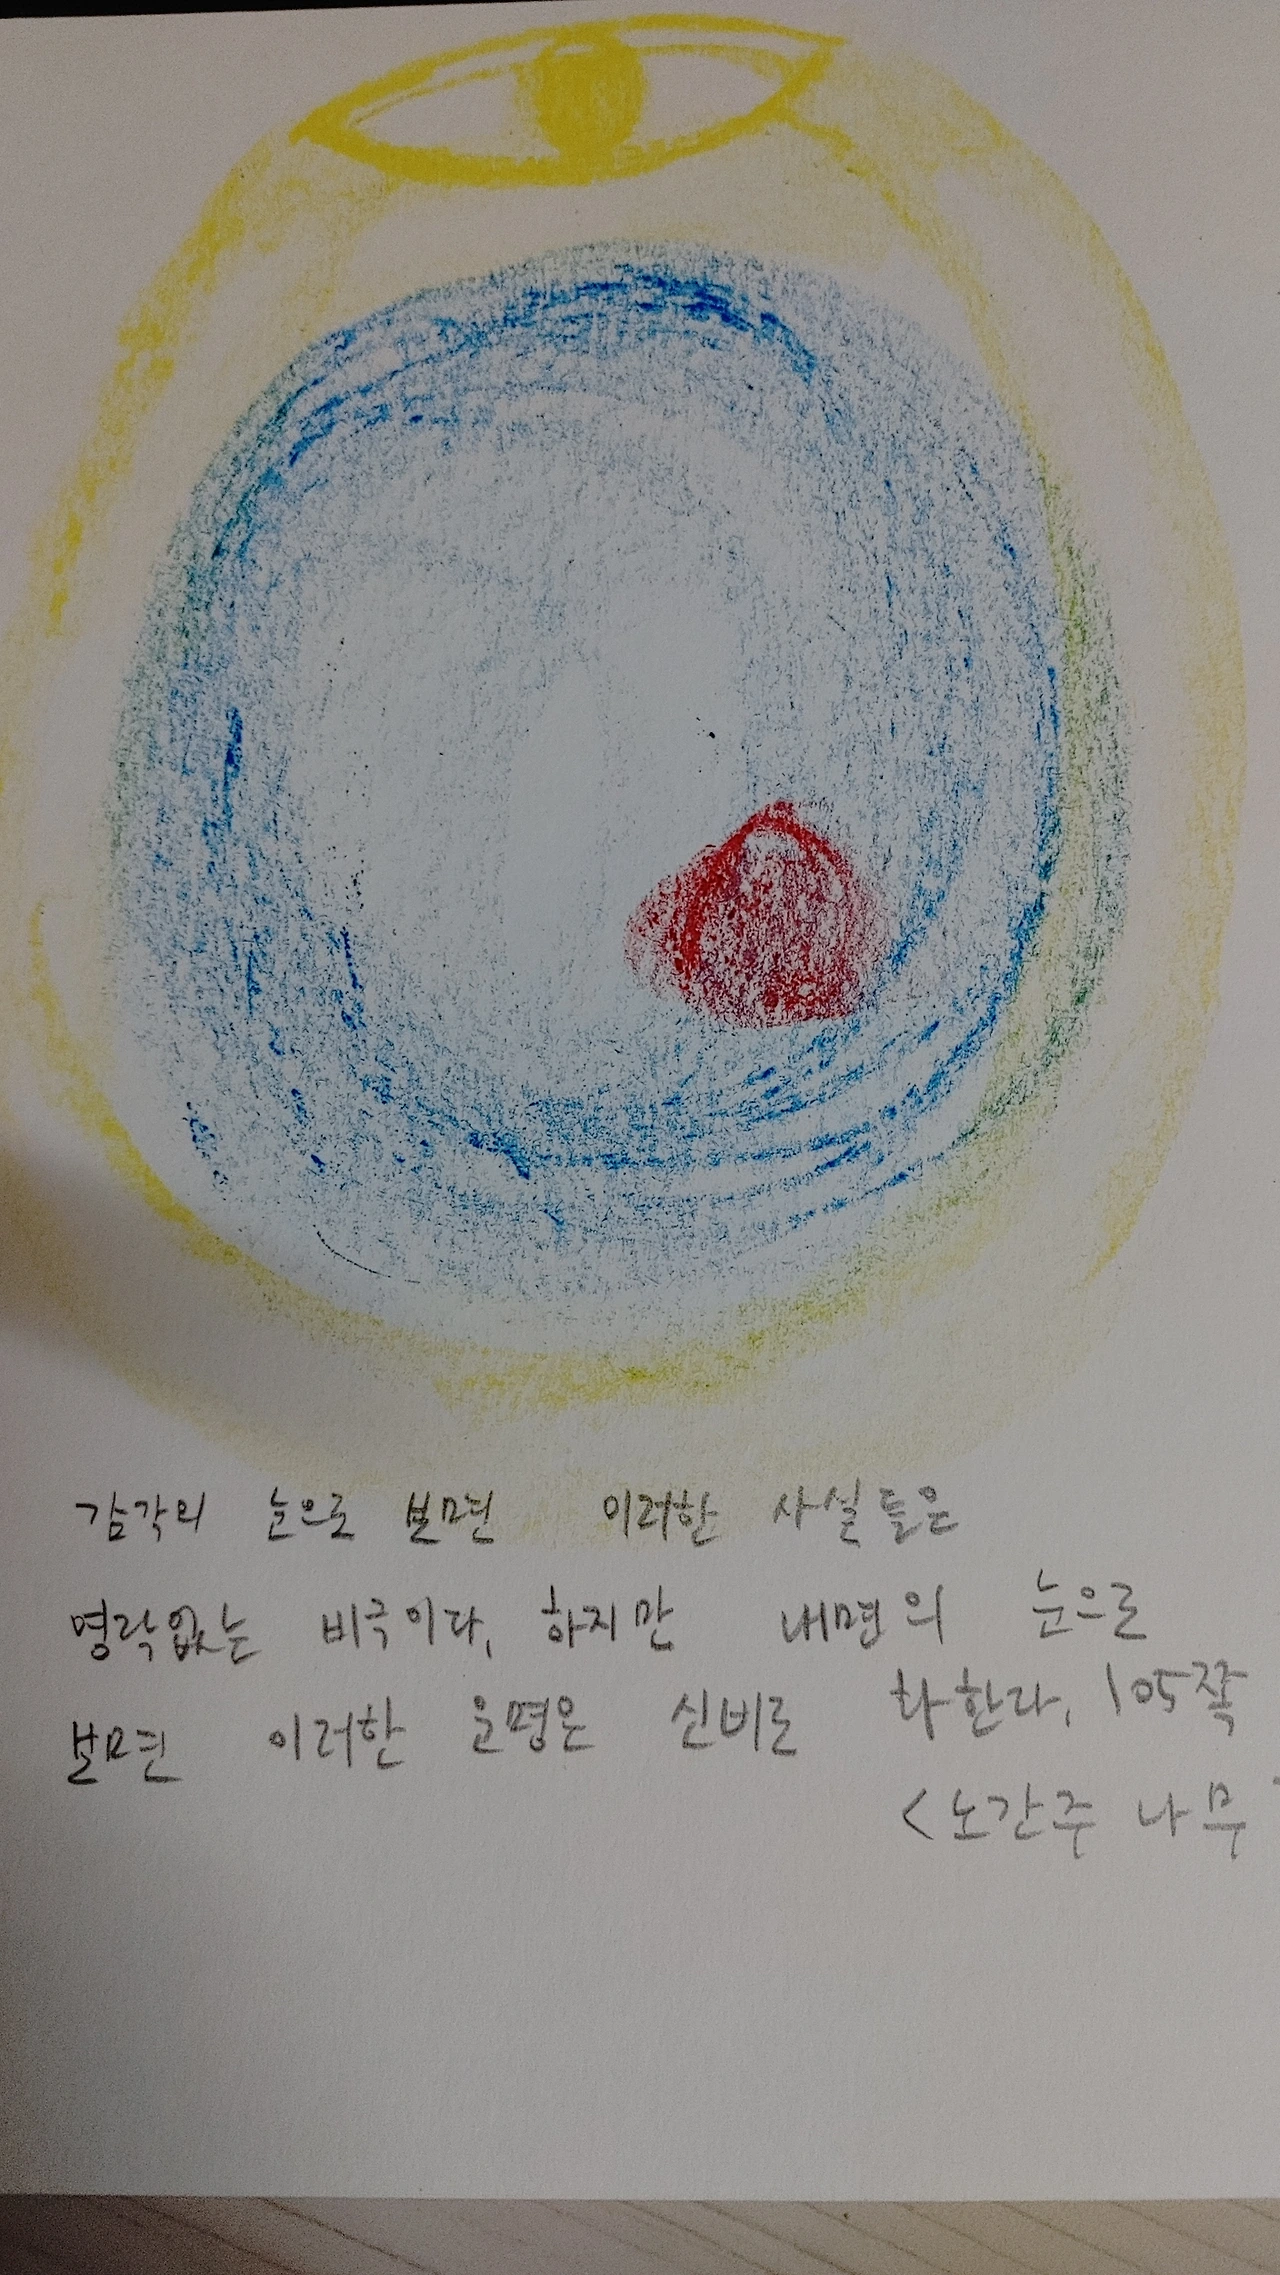 감각의 눈으로 보면 이러한 사실들은
영락없는 비극이다. 하지만 내면의 눈으로
보면 이러한 운명은 신비로 화한다. 105쪽
<노간주 나무>